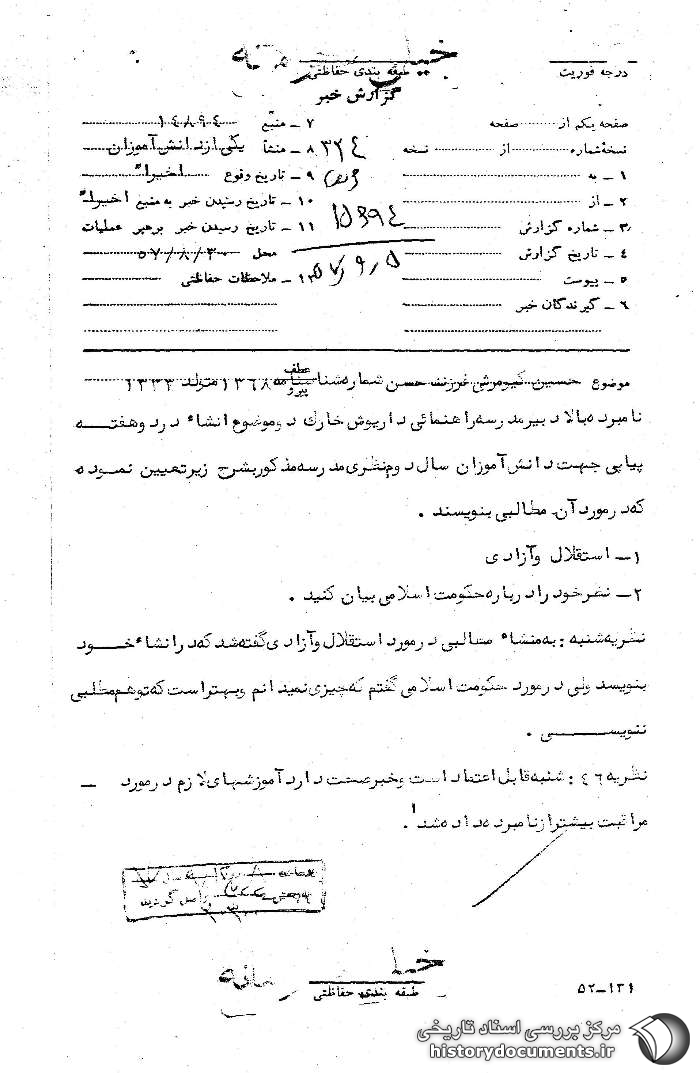 خیلی محرمانه
درجه فوریت
طبقه بندی حفاظتی
گزارش خبر
صفحه یکم از صفحه
نسخه شماره از نسخه
۱ ـ به
۲ ـ از
۳ ـ شماره گزارش
۴ ـ تاریخ گزارش
۵ ـ پیوست
۶ ـ گیرندگان خبر
۷ ـ منبع ۱۴۸۹۴
۸ ـ منشأ یکی از دانش آموزان
۹ ـ تاریخ وقوع اخیرا"
۱۰ ـ تاریخ رسیدن خبر به منبع اخیرا"
۱۱ ـ تاریخ رسیدن خبر برهبر عملیات
محل ۵۷/۸/۳۰
۱۲ ـ ملاحظات حفاظتی
۳۲۴
۱۵۳۹۴
۵۷/۹/۵
عطف
پیرو
موضوع حسین کیومرثی فرزند حسن شماره شناسنامه ۱۳۶۸ متولد ۱۳۳۳
نامبرده بالا دبیر مدرسه راهنمائی داریوش خارک دو موضوع انشاء در دو هفته
پیاپی جهت دانش آموزان سال دوم نظری مدرسه مذکور بشرح زیر تعیین نموده
که در مورد آن مطالبی بنویسند .
۱ـ استقلال وآزادی
۲ـ نظر خود را درباره حکومت اسلامی بیان کنید .
نظریه شنبه : به منشاء مطالبی در مورد استقلال وآزادی گفته شد که در انشاء خود
بنویسد ولی در مورد حکومت اسلامی گفتم که چیزی نمیدانم وبهتر است که توهم مطلبی
ننویسی .
نظریه ۴۶ : شنبه قابل اعتماد است وخبر صحت دارد آموزشهای لازم در مورد ـ
مراقبت بیشتر از نامبرده داده شد .
خیلی محرمانه
طبقه بندی حفاظتی
۵۲ـ۱۳۱
مرکز بررسی اسناد تاریخی
historydocuments.ir